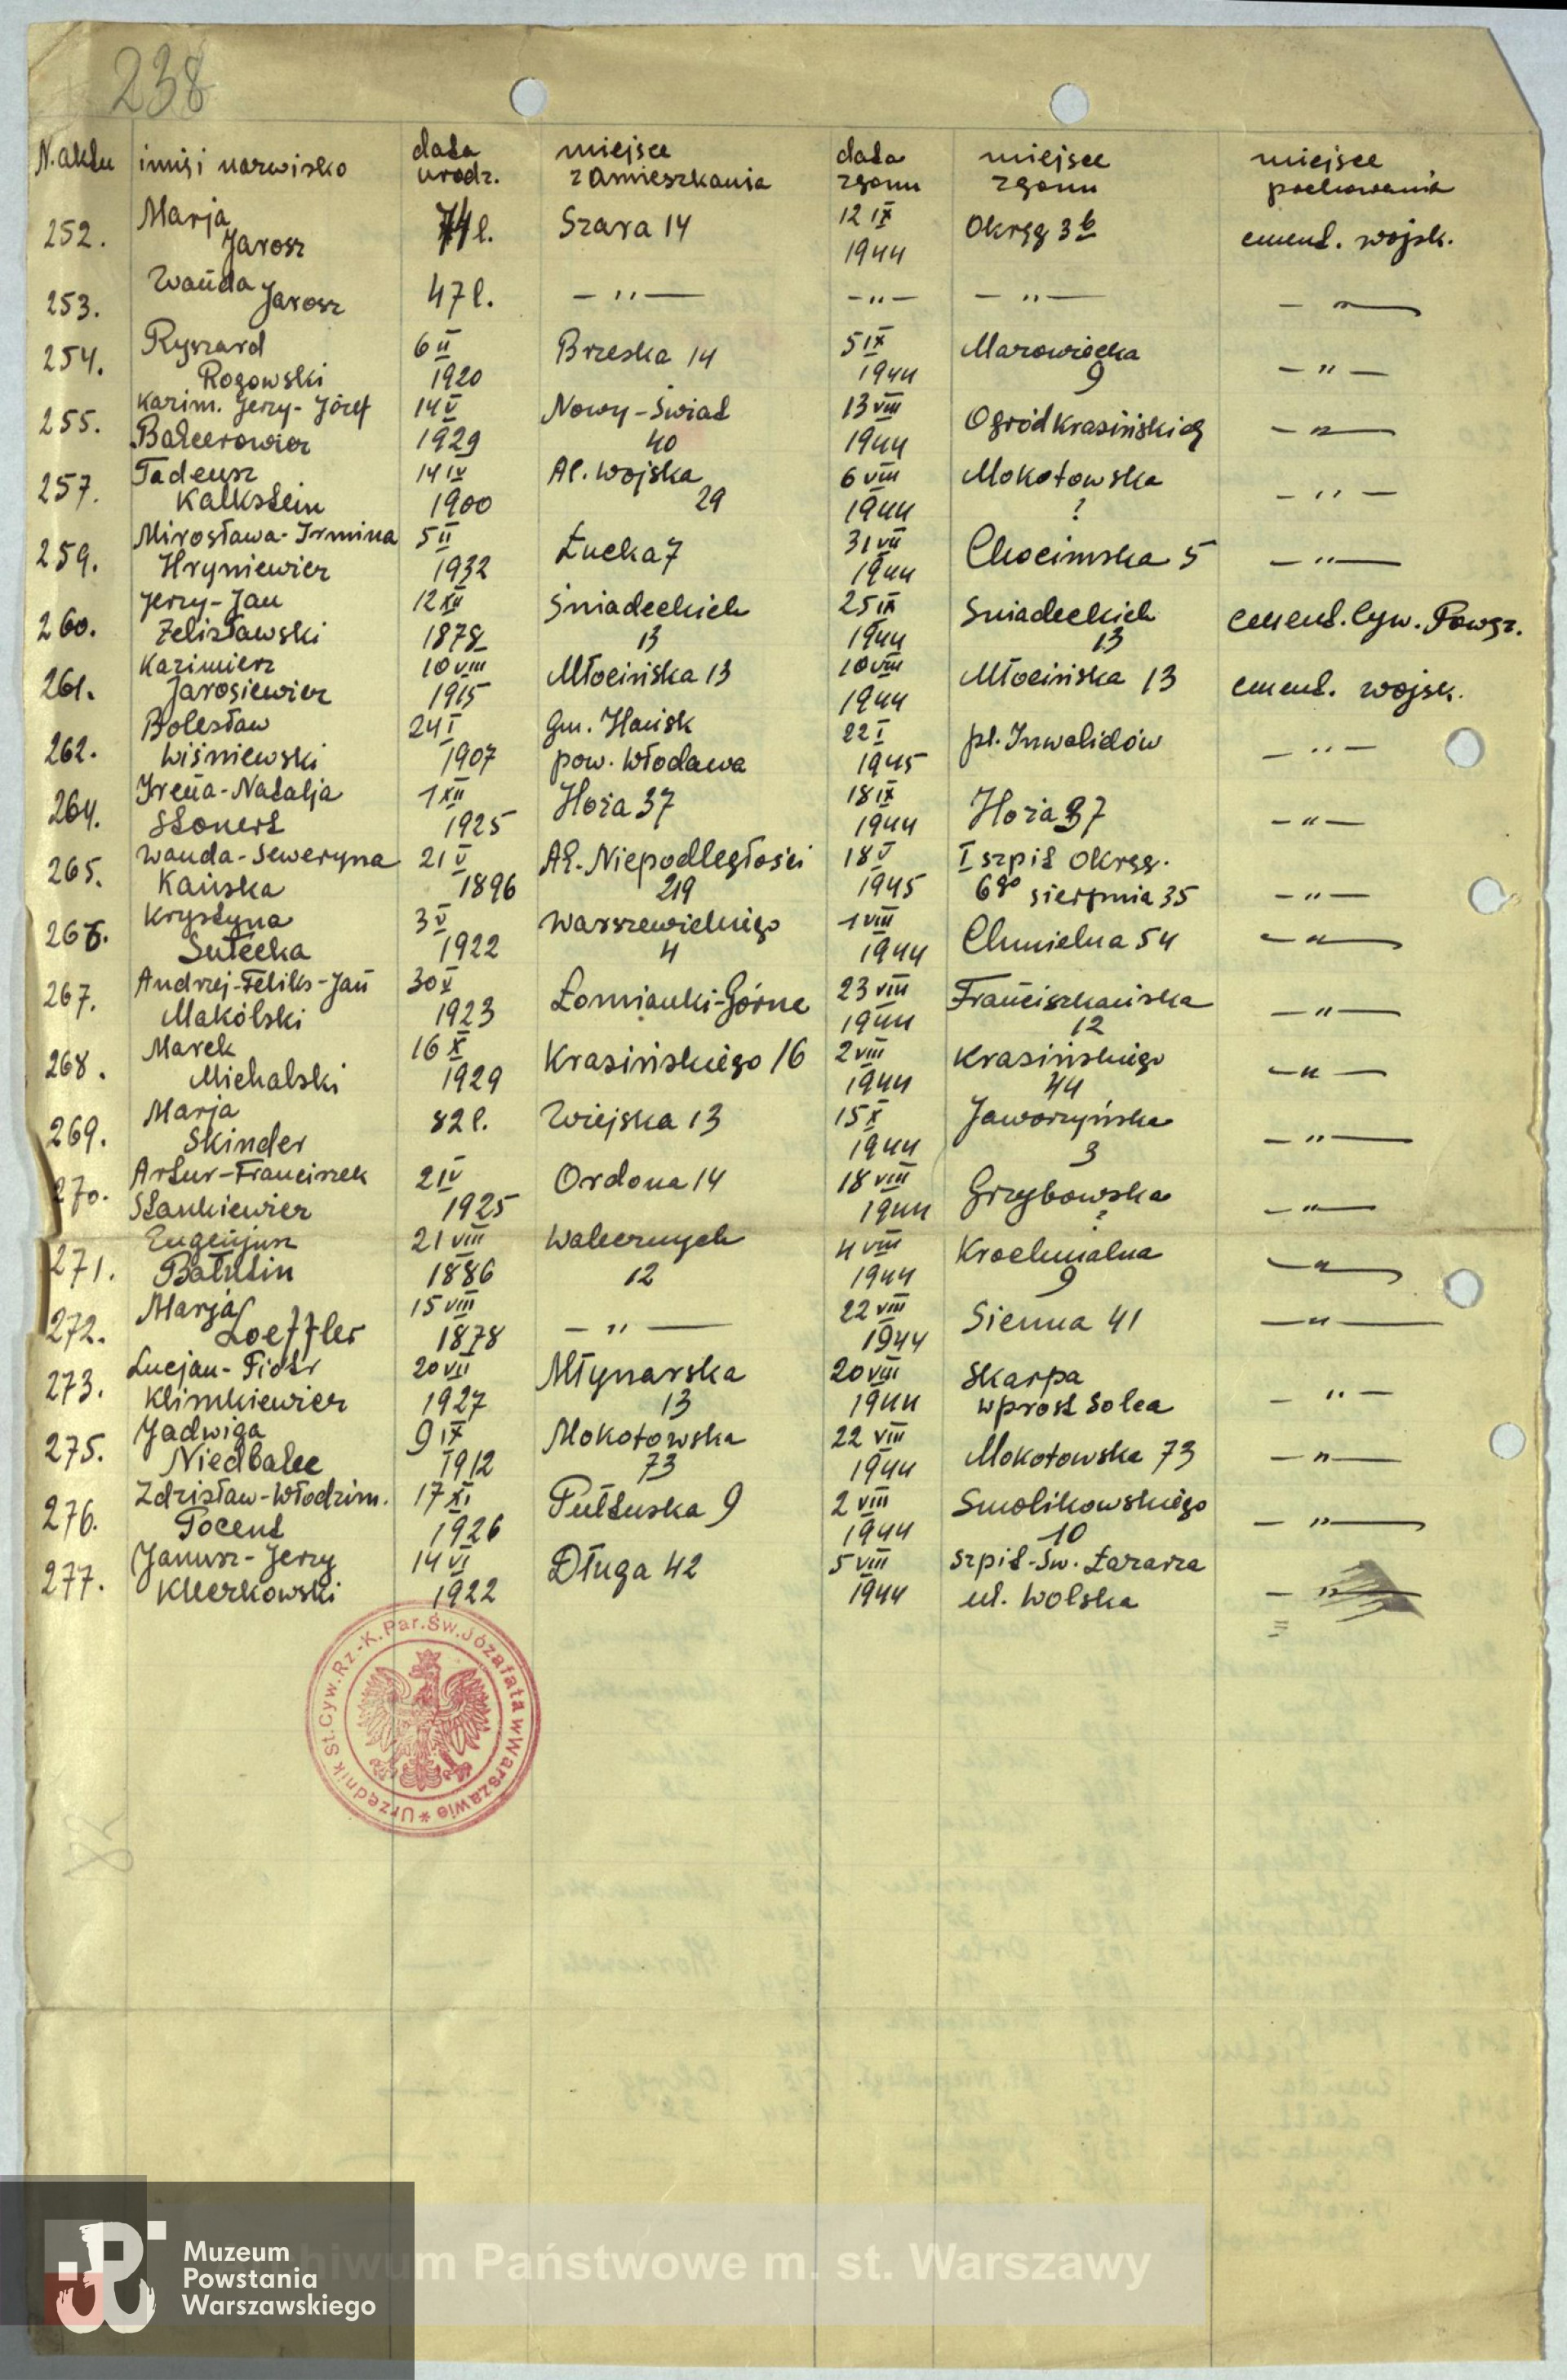 238
N. aktu imię i nazwisko data urodz. miejsce zamieszkania data zgonu miejsce zgonu miejsce pochowania
252. Marja Jarosz 74 l. Szara 14 12 IX 1944 Okrąg 3b cment. wojsk.
253. Wanda Jarosz 47 l. — " — — " — — " — — " —
254. Ryszard Rogowski 6 II 1920 Brzeska 14 5 IX 1944 Mazowiecka 9 — " —
255. Kazim. Jerzy-Józef Balcerowicz 14 V 1929 Nowy-Świat 40 13 VIII 1944 Ogród Krasińskich — " —
257. Tadeusz Kalkstein 14 IV 1900 Al. Wojska 29 6 VIII 1944 Mokotowska ? — " —
259. Mirosława-Irmina Hryniewicz 5 II 1932 Łucka 7 31 VII 1944 Chocimska 5 — " —
260. Jerzy-Jan Zelisławski 12 XII 1878 Śniadeckich 13 25 IX 1944 Śniadeckich 13 cment. Cyw. Powąz.
261. Kazimierz Jarosiewicz 10 VIII 1915 Młocińska 13 10 VIII 1944 Młocińska 13 cment. wojsk.
262. Bolesław Wiśniewski 24 I 1907 gm. Hańsk pow. Włodawa 22 I 1945 pl. Inwalidów — " —
264. Irena-Natalja Stonert 1 XII 1925 Hoża 37 18 IX 1944 Hoża 37 — " —
265. Wanda-Seweryna Kańska 21 V 1896 Al. Niepodległości 219 18 V 1945 I szpit Okręg. 6go sierpnia 35 — " —
266. Krystyna Sutecka 3 V 1922 Warszewickiego 4 1 VIII 1944 Chmielna 54 — " —
267. Andrzej-Feliks-Jan Makólski 30 V 1923 Łomianki-Górne 23 VIII 1944 Franciszkańska 12 — " —
268. Marek Michalski 16 X 1929 Krasińskiego 16 2 VIII 1944 Krasińskiego 44 — " —
269. Marja Skinder 82 l. Wiejska 13 15 X 1944 Jaworzyńska 3 — " —
270. Artur-Franciszek Stankiewicz 2 IV 1925 Ordona 14 18 VIII 1944 Grzybowska ? — " —
271. Eugenjusz Batutin 21 VIII 1886 Walecznych 12 4 VIII 1944 Krochmalna 9 — " —
272. Marja Loeffler 15 VIII 1878 — " — 22 VIII 1944 Sienna 41 — " —
273. Lucjan-Piotr Klimkiewicz 20 VII 1927 Młynarska 13 20 VIII 1944 Skarpa wprost Solca — " —
275. Jadwiga Niedbalec 9 IX 1912 Mokotowska 73 22 VIII 1944 Mokotowska 73 — " —
276. Zdzisław-Włodzim. Pocent 17 XI 1926 Pułtuska 9 2 VIII 1944 Smolikowskiego 10 — " —
277. Janusz-Jerzy Klerkowski 14 VI 1922 Długa 42 5 VIII 1944 szpit-Św. Łazarza ul. Wolska — " —
Urzędnik St. Cyw. Rz.-K. Par. Św. Józafata w Warszawie *
hiwum Państwowe m. st. Warszawy
Muzeum
Powstania
Warszawskiego